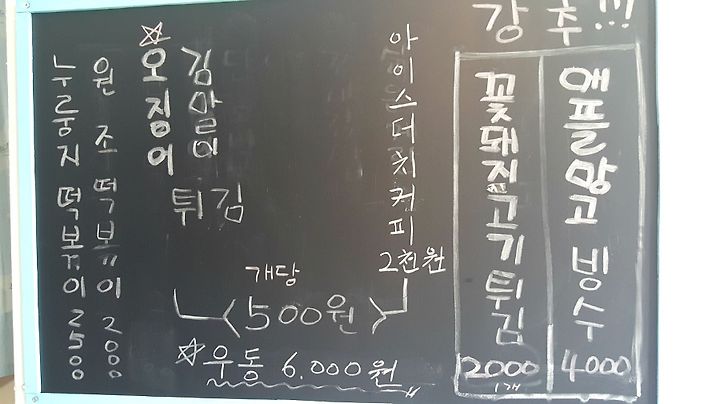 누룽지 떡볶이 2500
원조 떡볶이 2000
☆오징어
김말이
튀김
개당
500원
아이스더치커피
2천원
☆우동 6.000원
강추!!!
꽃돼지고기튀김
2000
1개
애플망고 빙수
4000